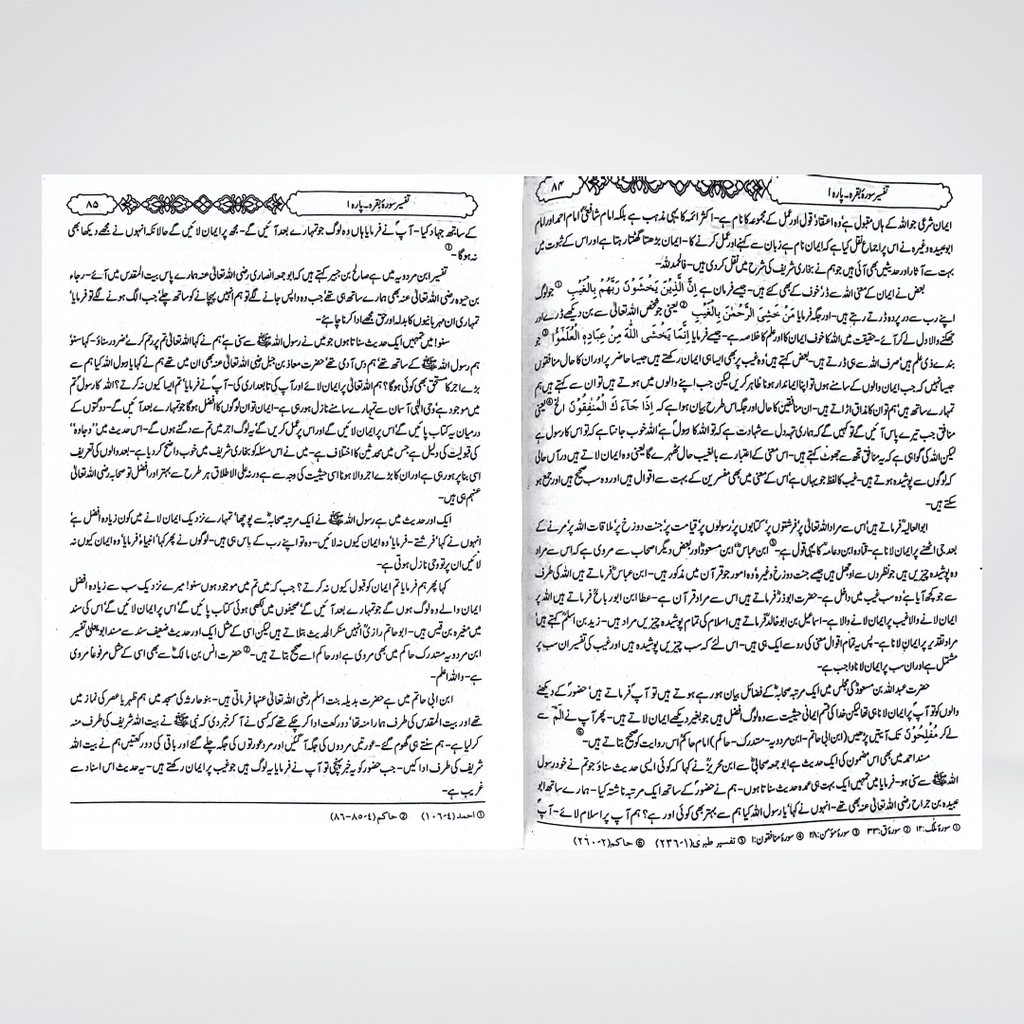 ۸۴
تفسیر سورۂ بقرہ۔ پارہ ۱
ایمان شرعی جو اللہ کے ہاں مقبول ہے وہ اعتقاد قول اور عمل کے مجموعہ کا نام ہے۔ اکثر ائمہ کا یہی مذہب ہے بلکہ امام شافعیؒ امام احمد اور امام
ابو عبیدہ وغیرہ نے اس پر اجماع نقل کیا ہے کہ ایمان نام ہے زبان سے کہنے اور عمل کرنے کا۔ ایمان بڑھتا گھٹتا رہتا ہے اور اس کے ثبوت میں
بہت سے آثار اور حدیثیں بھی آئی ہیں جو ہم نے بخاری شریف کی شرح میں نقل کر دی ہیں۔ فالحمد للہ۔
بعض نے ایمان کے معنی اللہ سے ڈر خوف کے بھی کئے ہیں۔ جیسے فرمان ہے اِنَّ الَّذِیْنَ یَخْشَوْنَ رَبَّهُمْ بِالْغَیْبِ ① جو لوگ
اپنے رب سے در پردہ ڈرتے رہے ہیں۔ اور جگہ فرمایا مَنْ خَشِیَ الرَّحْمٰنَ بِالْغَیْبِ ② یعنی جو شخص اللہ تعالیٰ سے بن دیکھے ڈرے اور
جھکنے والا دل لے کر آئے۔ حقیقت میں اللہ کا خوف ایمان کا اور علم کا خلاصہ ہے۔ جیسے فرمایا اِنَّمَا یَخْشَی اللّٰهَ مِنْ عِبَادِهِ الْعُلَمٰٓؤُا ③ جو
بندے ذی علم ہیں صرف اللہ سے ہی ڈرتے ہیں۔ بعض کہتے ہیں وہ غیب پر بھی ایسا ہی ایمان رکھتے ہیں جیسا حاضر پر اور ان کا حال منافقوں
جیسا نہیں کہ جب ایمان والوں کے سامنے ہوں تو اپنا ایماندار ہونا ظاہر کریں لیکن جب اپنے والوں میں ہوتے ہیں تو ان سے کہتے ہیں ہم
تمہارے ساتھ ہیں ہم تو ان کا مذاق اڑاتے ہیں۔ ان منافقین کا حال اور جگہ اس طرح بیان ہوا ہے کہ اِذَا جَآءَكَ الْمُنٰفِقُوْنَ الخ ④ یعنی
منافق جب تیرے پاس آئیں گے تو کہیں گے کہ ہماری تہہ دل سے شہادت ہے کہ تو اللہ کا رسول ہے اللہ خوب جانتا ہے کہ تو اس کا رسول ہے
لیکن اللہ کی گواہی ہے کہ یہ منافق تجھ سے جھوٹ کہتے ہیں۔ اس معنی کے اعتبار سے بالغیب حال ٹھہرے گا یعنی وہ ایمان لاتے ہیں درآں حالی
کہ لوگوں سے پوشیدہ ہوتے ہیں۔ غیب کا لفظ جو یہاں ہے اس کے معنی میں بھی مفسرین کے بہت سے اقوال ہیں اور وہ سب صحیح ہیں اور جمع ہو
سکتے ہیں۔
ابو العالیہؒ فرماتے ہیں اس سے مراد اللہ تعالیٰ پر فرشتوں پر کتابوں پر رسولوں پر قیامت پر جنت دوزخ پر ملاقات اللہ پر مرنے کے
بعد جی اٹھنے پر ایمان لانا ہے۔ قتادہ ابن دعامہ کا یہی قول ہے۔ ⑤ ابن عباسؓ ابن مسعودؓ اور بعض دیگر اصحاب سے مروی ہے کہ اس سے مراد
وہ پوشیدہ چیزیں ہیں جو نظروں سے اوجھل ہیں جیسے جنت دوزخ وغیرہ وہ امور جو قرآن میں مذکور ہیں۔ ابن عباسؓ فرماتے ہیں اللہ کی طرف
سے جو کچھ آیا ہے وہ سب غیب میں داخل ہے۔ حضرت ابوذرؓ فرماتے ہیں اس سے مراد قرآن ہے۔ عطا ابن ابو رباحؒ فرماتے ہیں اللہ پر
ایمان لانے والا غیب پر ایمان لانے والا ہے۔ اسماعیل بن ابو خالدؒ فرماتے ہیں اسلام کی تمام پوشیدہ چیزیں مراد ہیں۔ زید بن اسلمؒ کہتے ہیں
مراد تقدیر پر ایمان لانا ہے۔ پس یہ تمام اقوال معنی کی رو سے ایک ہی ہیں۔ اس لئے کہ سب چیزیں پوشیدہ ہیں اور غیب کی تفسیر ان سب پر
مشتمل ہے اور ان سب پر ایمان لانا واجب ہے۔
حضرت عبداللہ بن مسعودؓ کی مجلس میں ایک مرتبہ صحابہؓ کے فضائل بیان ہو رہے ہوتے ہیں تو آپؓ فرماتے ہیں حضورؐ کے دیکھنے
والوں کو تو آپؐ پر ایمان لانا ہی تھا لیکن خدا کی قسم ایمانی حیثیت سے وہ لوگ افضل ہیں جو بغیر دیکھے ایمان لاتے ہیں۔ پھر آپ نے الٓمّٓ سے
لے کر مُفْلِحُوْنَ تک آیتیں پڑھیں (ابن ابی حاتم۔ ابن مردویہ۔ مستدرک۔ حاکم) امام حاکمؒ اس روایت کو صحیح بتاتے ہیں۔ ⑥
مسند احمد میں بھی اس مضمون کی ایک حدیث ہے ابو جمعہ صحابیؓ سے ابن محیریزؒ نے کہا کہ کوئی ایسی حدیث سناؤ جو تم نے خود رسول
اللہ ﷺ سے سنی ہو۔ فرمایا میں تمہیں ایک بہت ہی عمدہ حدیث سناتا ہوں۔ ہم نے حضورؐ کے ساتھ ایک مرتبہ ناشتہ کیا۔ ہمارے ساتھ ابو
عبیدہ بن جراح رضی اللہ تعالیٰ عنہ بھی تھے۔ انہوں نے کہا یا رسول اللہ کیا ہم سے بہتر بھی کوئی اور ہے؟ ہم آپ پر اسلام لائے۔ آپؐ
① سورۂ ملک: ۱۲ ② سورۂ ق: ۳۳ ③ سورۂ مؤمن: ۲۸ ④ سورۂ منافقون: ۱ ⑤ تفسیر طبری (۱-۲۳۶) ⑥ حاکم (۲-۲۶۰)
تفسیر سورۂ بقرہ۔ پارہ ۱
۸۵
کے ساتھ جہاد کیا۔ آپؐ نے فرمایا ہاں وہ لوگ جو تمہارے بعد آئیں گے۔ مجھ پر ایمان لائیں گے حالانکہ انہوں نے مجھے دیکھا بھی
نہ ہوگا۔ ①
تفسیر ابن مردویہ میں ہے صالح بن جبیر کہتے ہیں کہ ابو جمعہ انصاری رضی اللہ تعالیٰ عنہ ہمارے پاس بیت المقدس میں آئے۔ رجاء
بن حیوہ رضی اللہ تعالیٰ عنہ بھی ہمارے ساتھ ہی تھے جب وہ واپس جانے لگے تو ہم انہیں پہچانے کو ساتھ چلے جب الگ ہونے لگے تو فرمایا
تمہاری ان مہربانیوں کا بدلہ اور حق مجھے ادا کرنا چاہئے۔
سنو! میں تمہیں ایک حدیث سناتا ہوں جو میں نے رسول اللہ ﷺ سے سنی ہے ہم نے کہا اللہ تعالیٰ تم پر رحم کرے ضرور سناؤ۔ کہا سنو
ہم رسول اللہ ﷺ کے ساتھ تھے ہم دس آدمی تھے حضرت معاذ بن جبل رضی اللہ تعالیٰ عنہ بھی ان میں تھے ہم نے کہا یا رسول اللہ کیا ہم سے
بڑے اجر کا مستحق بھی کوئی ہوگا؟ ہم اللہ تعالیٰ پر ایمان لائے اور آپ کی تابعداری کی۔ آپؐ نے فرمایا تم ایسا کیوں نہ کرتے؟ اللہ کا رسول تم
میں موجود ہے وحی الٰہی آسمان سے تمہارے سامنے نازل ہو رہی ہے۔ ایمان تو ان لوگوں کا افضل ہوگا جو تمہارے بعد آئیں گے۔ دو گتوں کے
درمیان یہ کتاب پائیں گے اس پر ایمان لائیں گے اور اس پر عمل کریں گے یہ لوگ اجر میں تم سے دگنے ہوں گے۔ اس حدیث میں ”وجادہ“
کی قبولیت کی دلیل ہے جس میں محدثین کا اختلاف ہے۔ میں نے اس مسئلہ کو بخاری شریف میں خوب واضح کر دیا ہے۔ بعد والوں کی تعریف
اسی بنا پر ہو رہی ہے اور ان کا بڑے اجر والا ہونا اسی حیثیت کی وجہ سے ہے ورنہ علی الاطلاق ہر طرح سے بہتر اور افضل تو صحابہ رضی اللہ تعالیٰ
عنہم ہی ہیں۔
ایک اور حدیث میں ہے رسول اللہ ﷺ نے ایک مرتبہ صحابہؓ سے پوچھا تمہارے نزدیک ایمان لانے میں کون زیادہ افضل ہے
انہوں نے کہا فرشتے۔ فرمایا وہ ایمان کیوں نہ لائیں۔ وہ تو اپنے رب کے پاس ہی ہیں۔ لوگوں نے پھر کہا انبیاء فرمایا وہ ایمان کیوں نہ
لائیں ان پر تو وحی نازل ہوتی ہے۔
کہا پھر ہم فرمایا تم ایمان کو قبول کیوں نہ کرتے؟ جب کہ میں تم میں موجود ہوں سنو! میرے نزدیک سب سے زیادہ افضل
ایمان والے وہ لوگ ہوں گے جو تمہارے بعد آئیں گے صحیفوں میں لکھی ہوئی کتاب پائیں گے اس پر ایمان لائیں گے اس کی سند
میں مغیرہ بن قیس ہیں۔ ابو حاتم رازیؒ انہیں منکر الحدیث بتلاتے ہیں لیکن اسی کے مثل ایک اور حدیث ضعیف سند سے مسند ابو یعلیٰ تفسیر
ابن مردویہ مستدرک حاکم میں بھی مروی ہے اور حاکم اسے صحیح بتاتے ہیں۔ ② حضرت انس بن مالکؓ سے بھی اسی کے مثل مرفوعاً مروی
ہے۔ واللہ اعلم۔
ابن ابی حاتم میں ہے حضرت بدیلہ بنت اسلم رضی اللہ تعالیٰ عنہا فرماتی ہیں۔ بنو حارثہ کی مسجد میں ہم ظہر یا عصر کی نماز میں
تھے اور بیت المقدس کی طرف ہمارا منہ تھا دو رکعت ادا کر چکے تھے کہ کسی نے آ کر خبر دی کہ نبی ﷺ نے بیت اللہ شریف کی طرف منہ
کر لیا ہے۔ ہم سنتے ہی گھوم گئے۔ عورتیں مردوں کی جگہ آ گئیں اور مرد عورتوں کی جگہ چلے گئے اور باقی کی دو رکعتیں ہم نے بیت اللہ
شریف کی طرف ادا کیں۔ جب حضور کو یہ خبر پہنچی تو آپ نے فرمایا یہ لوگ ہیں جو غیب پر ایمان رکھتے ہیں۔ یہ حدیث اس اسناد سے
غریب ہے۔
① احمد (۴-۱۰۶) ② حاکم (۴-۸۵-۸۶)